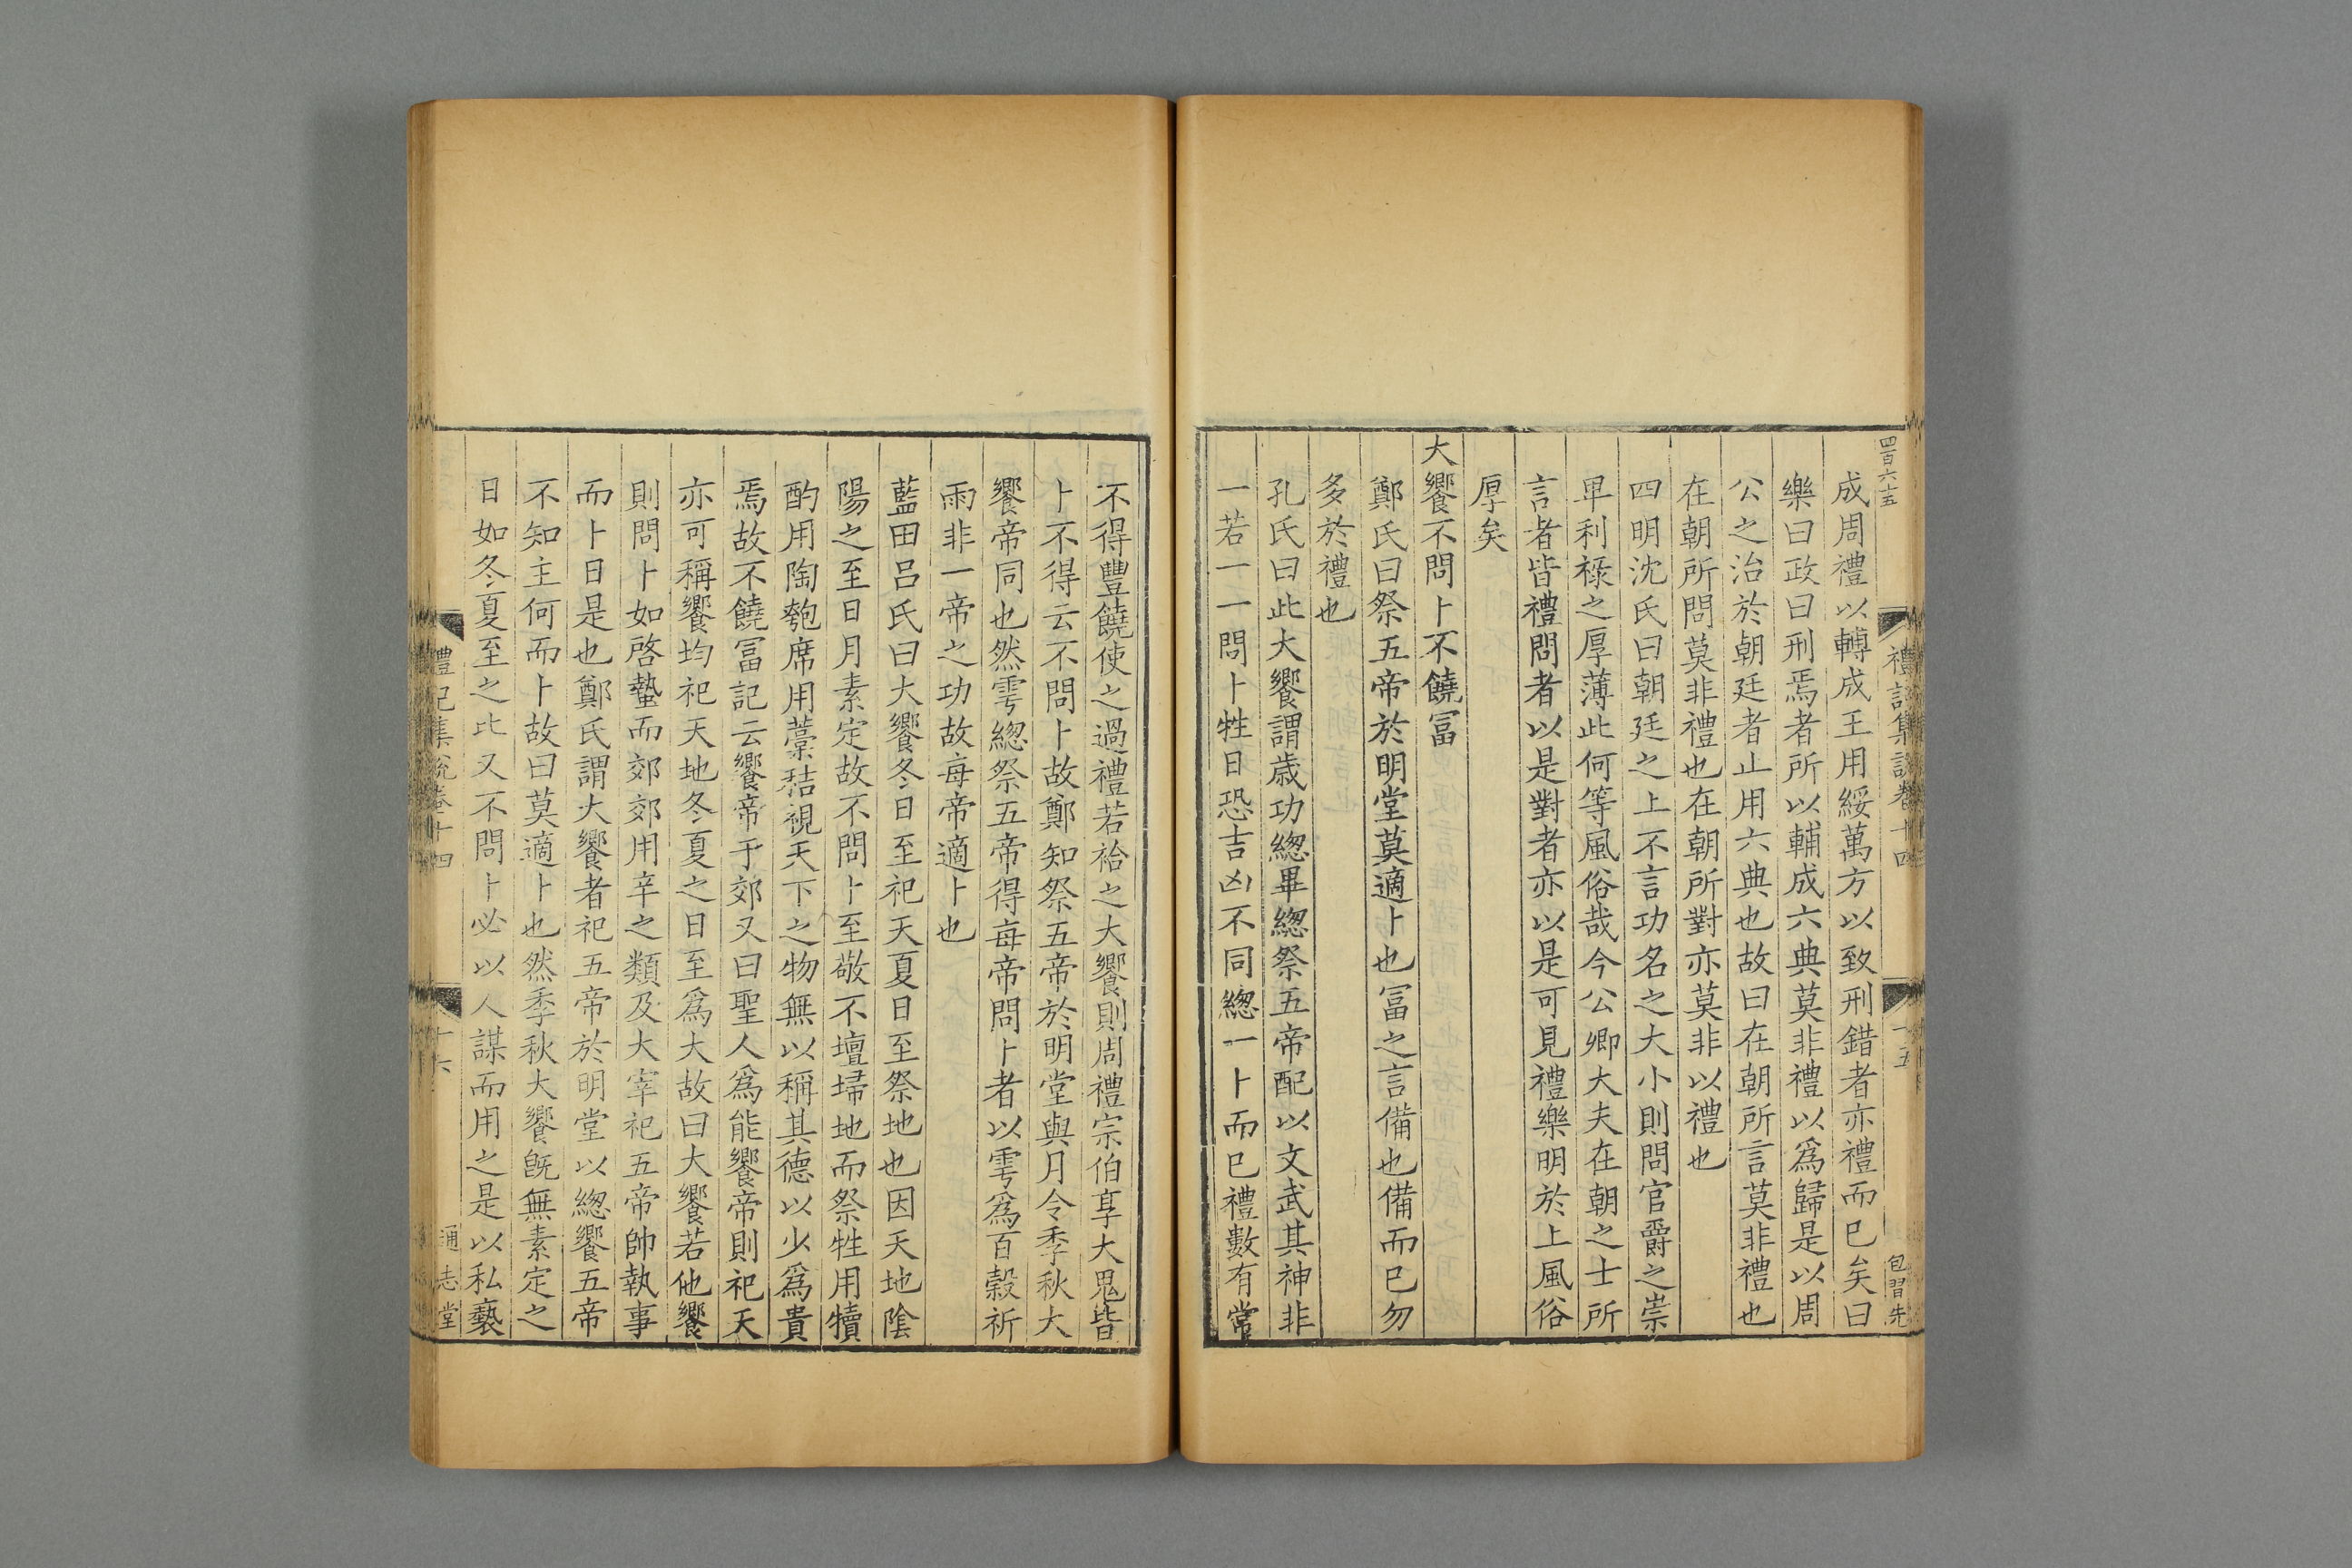 四百六十五
禮記集說卷十四
十五
包習先
成周禮以轉成王用綏萬方以致刑錯者亦禮而已矣曰
樂曰政曰刑焉者所以輔成六典莫非禮以爲歸是以周
公之治於朝廷者止用六典也故曰在朝所言莫非禮也
在朝所問莫非禮也在朝所對亦莫非以禮也
四明沈氏曰朝廷之上不言功名之大小則問官爵之崇
卑利祿之厚薄此何等風俗哉今公卿大夫在朝之士所
言者皆禮問者以是對者亦以是可見禮樂明於上風俗
厚矣
大饗不問卜不饒冨
鄭氏曰祭五帝於明堂莫適卜也冨之言備也備而已勿
多於禮也
孔氏曰此大饗謂歲功緫畢緫祭五帝配以文武其神非
一若一一問卜牲日恐吉凶不同緫一卜而已禮數有常
不得豐饒使之過禮若祫之大饗則周禮宗伯享大鬼皆
卜不得云不問卜故鄭知祭五帝於明堂與月令季秋大
饗帝同也然雩緫祭五帝得每帝問卜者以雩爲百穀祈
雨非一帝之功故每帝適卜也
藍田呂氏曰大饗冬日至祀天夏日至祭地也因天地陰
陽之至日月素定故不問卜至敬不壇埽地而祭牲用犢
酌用陶匏席用藁秸視天下之物無以稱其德以少爲貴
焉故不饒冨記云饗帝于郊又曰聖人爲能饗帝則祀天
亦可稱饗均祀天地冬夏之日至爲大故曰大饗若他饗
則問卜如啓蟄而郊郊用辛之類及大宰祀五帝帥執事
而卜日是也鄭氏謂大饗者祀五帝於明堂以緫饗五帝
不知主何而卜故曰莫適卜也然季秋大饗旣無素定之
日如冬夏至之比又不問卜必以人謀而用之是以私褻
禮記集說卷十四
十六
通志堂